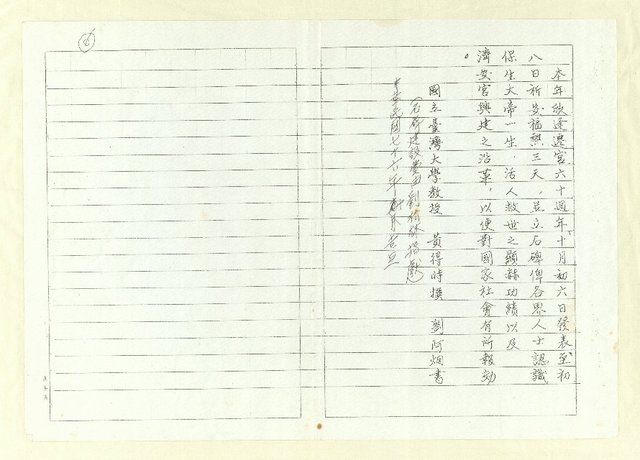 本年欣逢遷宮六十週年，十月初六日發表至初
八日祈安福醮三天，並立石碑俾各界人士認識
保生大帝一生，活人救世之顯赫功績以及
濟安宮興建之沿革，以便對國家社會有所報効
。
國立臺灣大學教授 黃得時撰 劉阿烟書
(石碑建設費由劉 捐獻)
中華民國七十六年 月吉旦
6